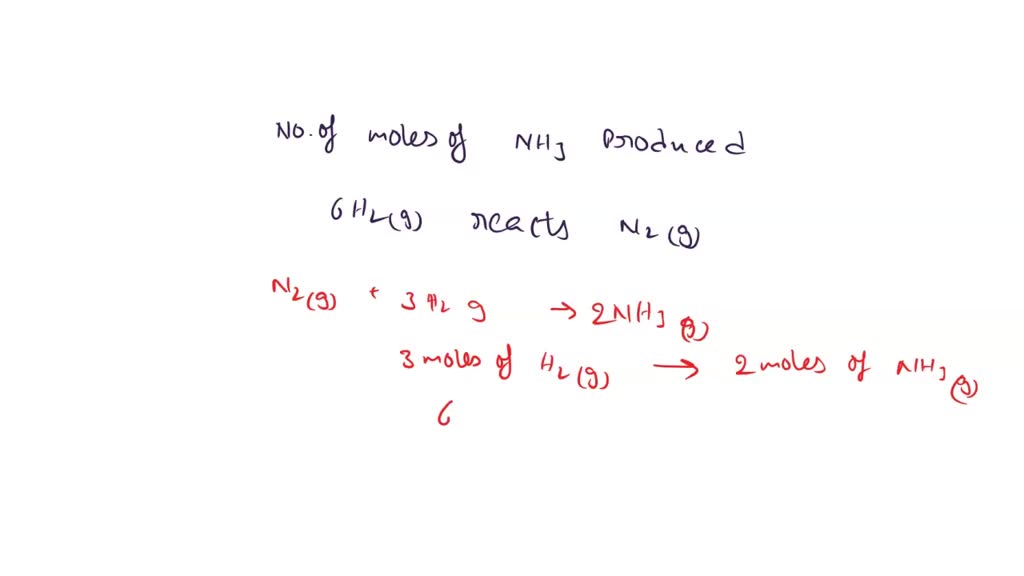 No. of moles of NH3 Produced
6H2(g) reacts N2(g)
N2(g) + 3H2 g → 2NH3(g)
3 moles of H2(g) → 2 moles of NH3(g)
6